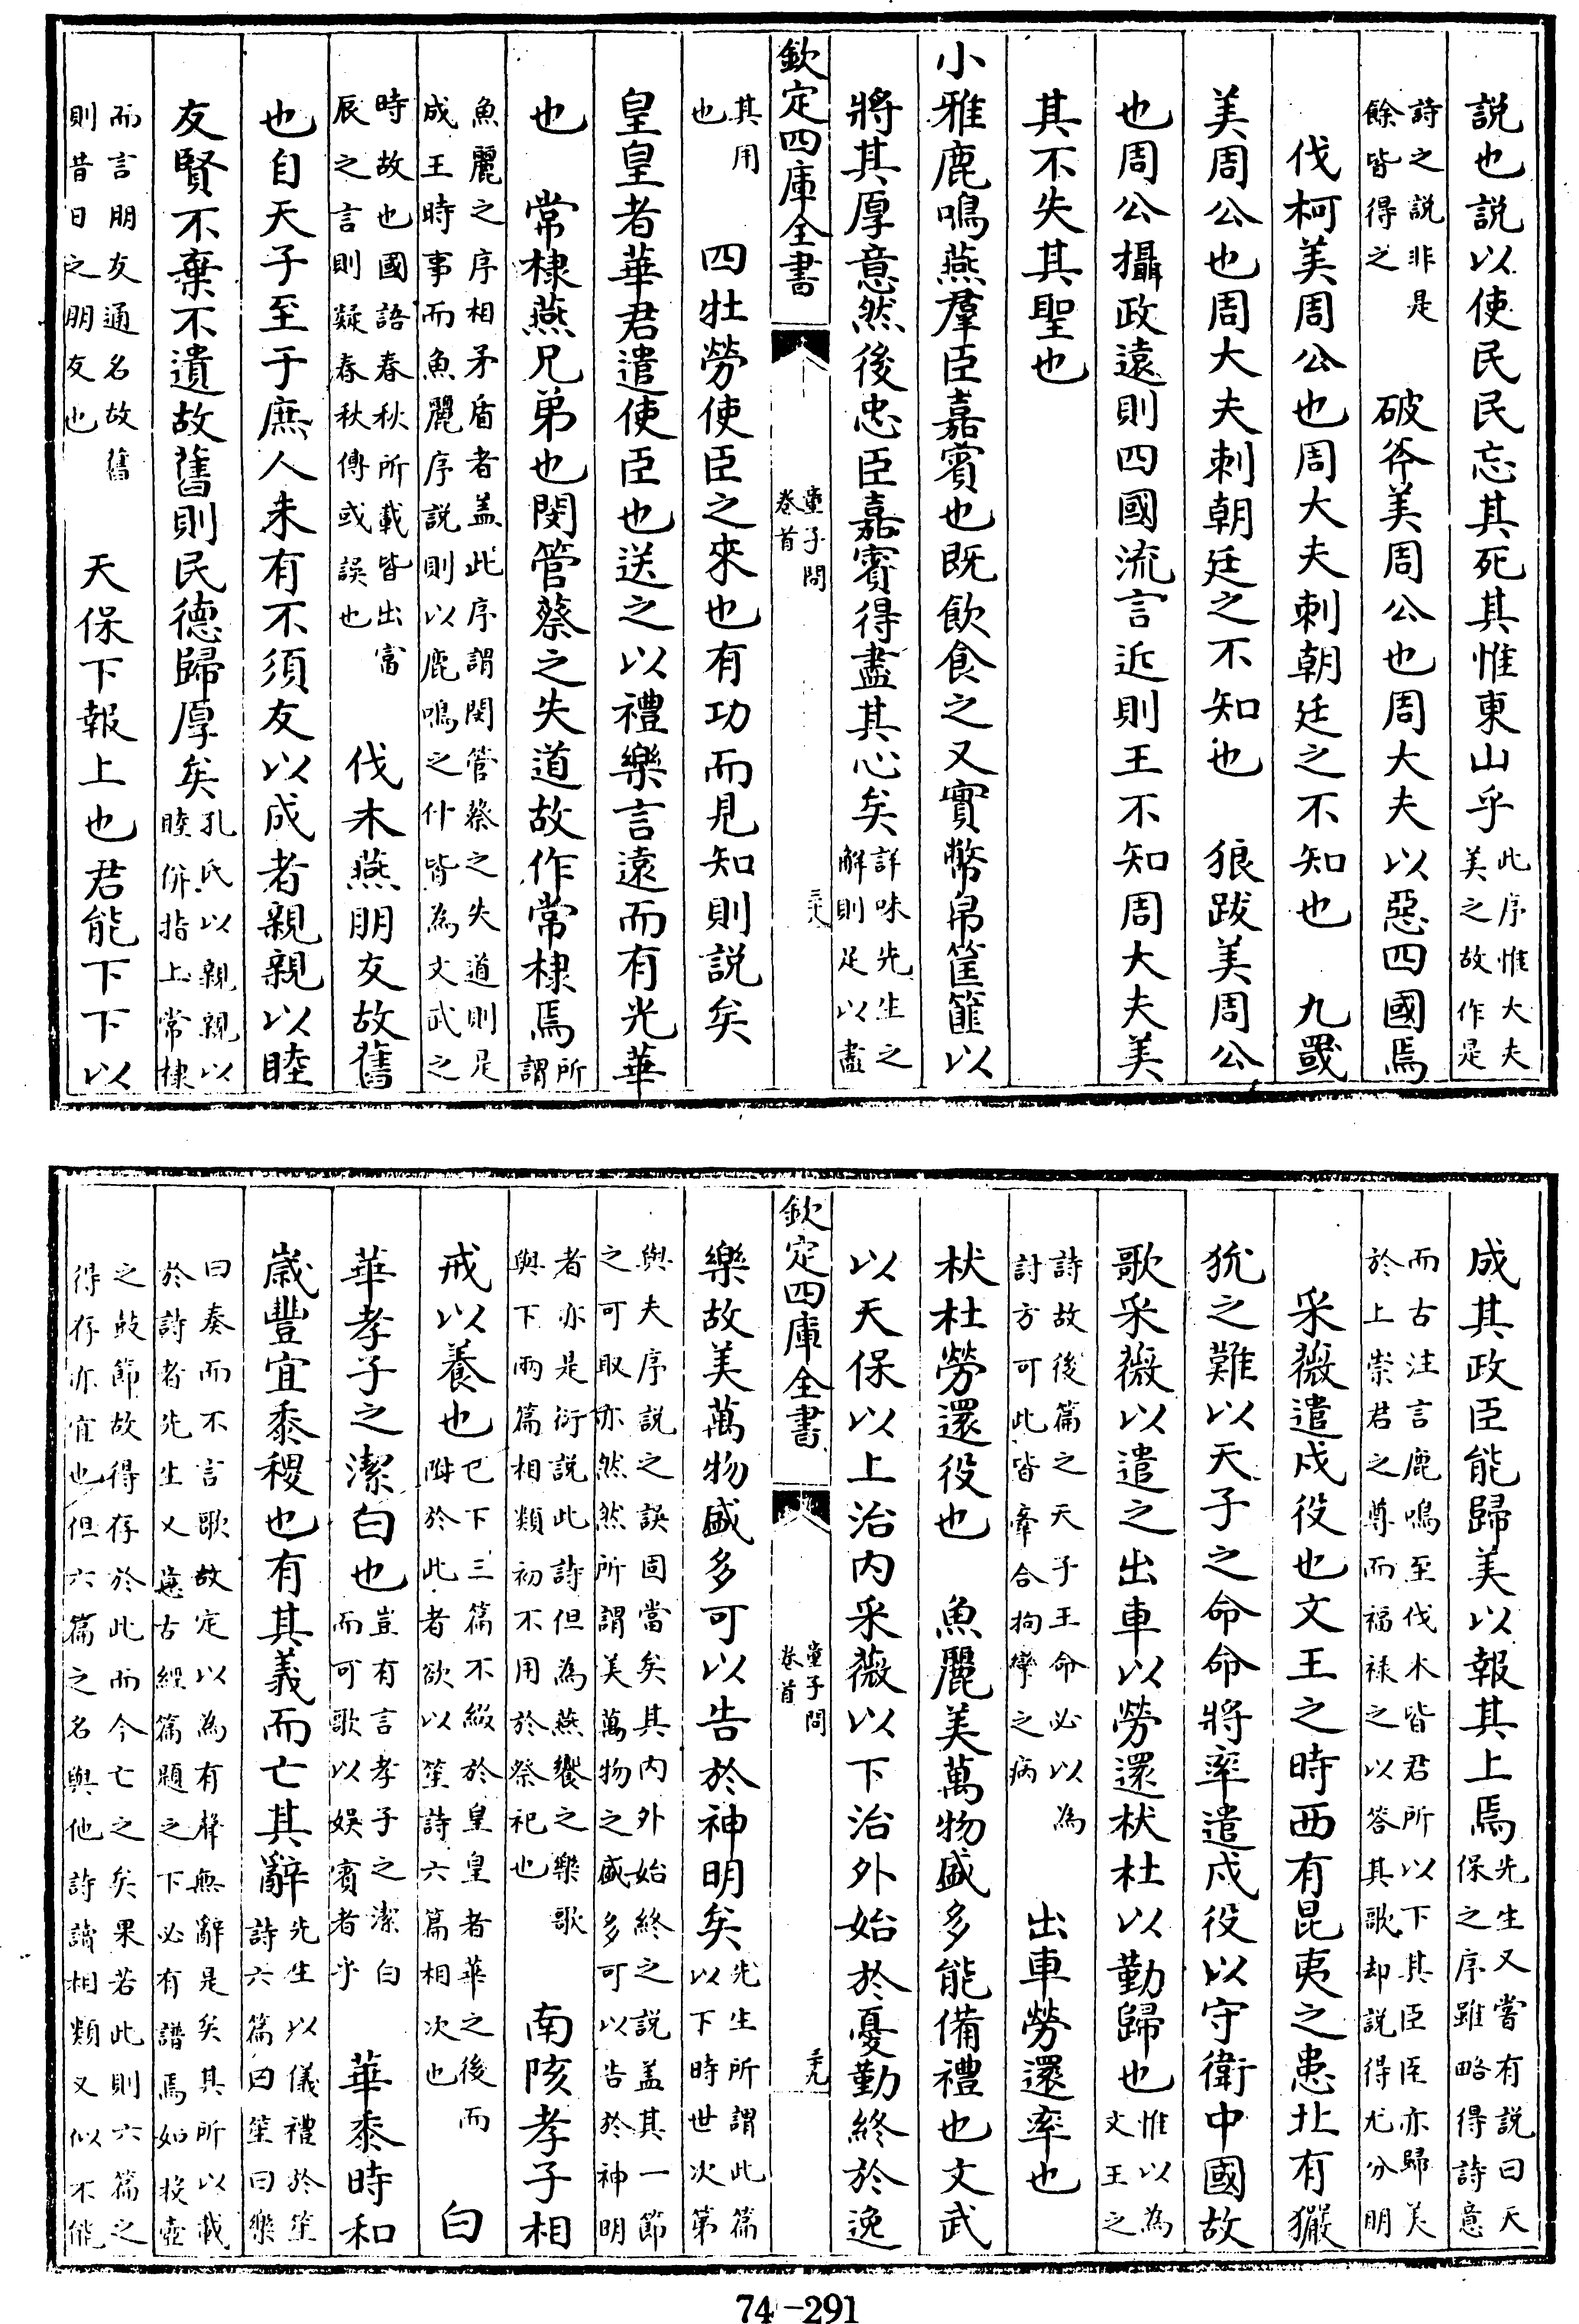 説也説以使民民忘其死其惟東山乎此序惟大夫美之故作是
詩之説非是餘皆得之　破斧美周公也周大夫以惡四國焉
伐柯美周公也周大夫刺朝廷之不知也　九罭
美周公也周大夫刺朝廷之不知也　狼跋美周公
也周公攝政遠則四國流言近則王不知周大夫美
其不失其聖也
小雅鹿鳴燕羣臣嘉賓也既飲食之又實幣帛筐篚以
將其厚意然後忠臣嘉賓得盡其心矣詳味先生之解則足以盡
欽定四庫全書　童子問卷首　三十八
其用也　四牡勞使臣之來也有功而見知則説矣
皇皇者華君遣使臣也送之以禮樂言遠而有光華
也　常棣燕兄弟也閔管蔡之失道故作常棣焉所謂
魚麗之序相矛盾者盖此序謂閔管蔡之失道則是成王時事而魚麗序説則以鹿鳴之什皆為文武之
時故也國語春秋所載皆出富辰之言則疑春秋傳或誤也　伐木燕朋友故舊
也自天子至于庶人未有不須友以成者親親以睦
友賢不棄不遺故舊則民德歸厚矣孔氏以親親以睦併指上常棣
而言朋友通名故舊則昔日之朋友也　天保下報上也君能下下以
成其政臣能歸美以報其上焉先生又嘗有説曰天保之序雖略得詩意
而古注言鹿鳴至伐木皆君所以下其臣臣亦歸美於上崇君之尊而福祿之以答其歌却説得尤分明
采薇遣戍役也文王之時西有昆夷之患北有玁
狁之難以天子之命命將率遣戍役以守衛中國故
歌采薇以遣之出車以勞還杕杜以勤歸也惟以為文王之
詩故後篇之天子王命必以為討方可此皆牽合拘攣之病　出車勞還率也
杕杜勞還役也　魚麗美萬物盛多能備禮也文武
以天保以上治内采薇以下治外始於憂勤終於逸
欽定四庫全書　童子問卷首　三十九
樂故美萬物盛多可以告於神明矣先生所謂此篇以下時世次第
與夫序説之誤固當矣其内外始終之説盖其一節之可取亦然然所謂美萬物之盛多可以告於神明
者亦是衍説此詩但為燕饗之樂歌與下兩篇相類初不用於祭祀也　南陔孝子相
戒以養也已下三篇不綴於皇皇者華之後而附於此者欲以笙詩六篇相次也　白
華孝子之潔白也豈有言孝子之潔白而可歌以娱賓者乎　華黍時和
歲豐宜黍稷也有其義而亡其辭先生以儀禮於笙詩六篇曰笙曰樂
曰奏而不言歌故定以為有聲無辭是矣其所以載於詩者先生又意古經篇題之下必有譜焉如投壺
之鼓節故得存於此而今亡之矣果若此則六篇之得存亦宜也但六篇之名與他詩諸相類又似不能
74-291